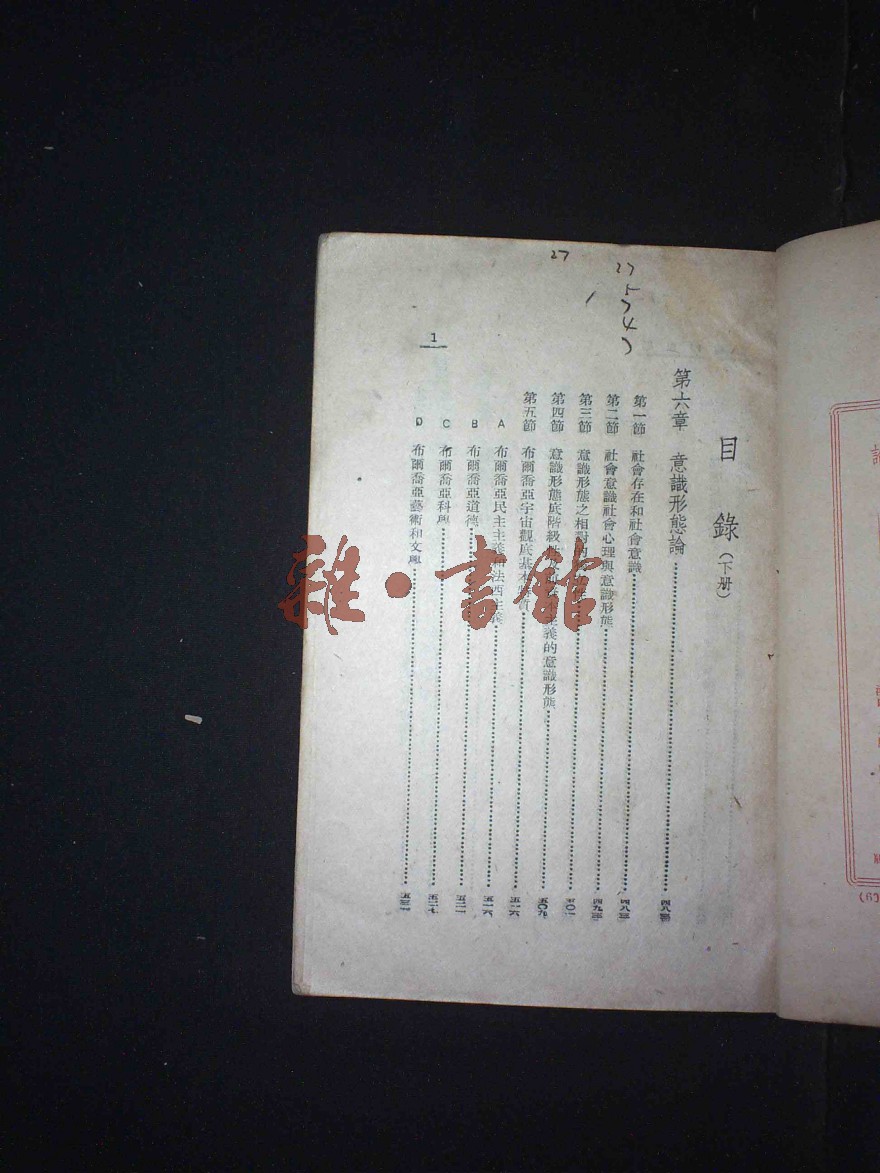 27
27
5
7
4
1
目錄(下册)
第六章 意識形態論 四八三
第一節 社會存在和社會意識 四八三
第二節 社會意識社會心理與意識形態 四九三
第三節 意識形態之相對的 五〇一
第四節 意識形態底階級性 主義的意識形態 五〇九
第五節 布爾喬亞宇宙觀底基本 質 五一六
A 布爾喬亞民主主義和法西主義 五一六
B 布爾喬亞道德 五二一
C 布爾喬亞科學 五二七
D 布爾喬亞藝術和文學
雜·書館